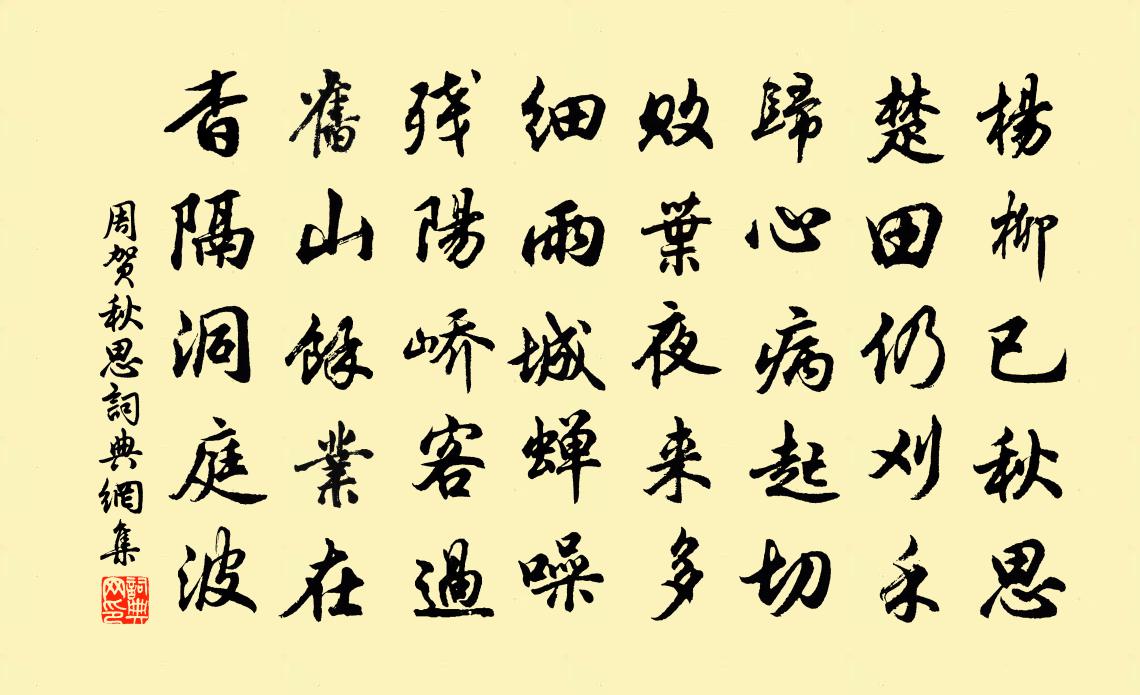 楊柳已秋思
楚田仍刈禾
歸心病起切
敗葉夜来多
細雨城蝉噪
残陽嶠客過
舊山餘業在
杳隔洞庭波
周贺秋思詞典網集
詞典网印